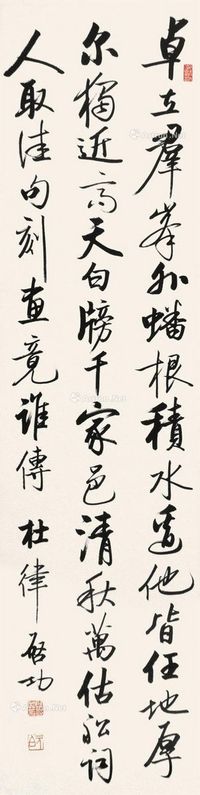 卓立羣峯外蟠根積水邊他皆任地厚
尔獨近高天白牓千家邑清秋萬估船詞
人取佳句刻畫竟誰傳 杜律 啓功